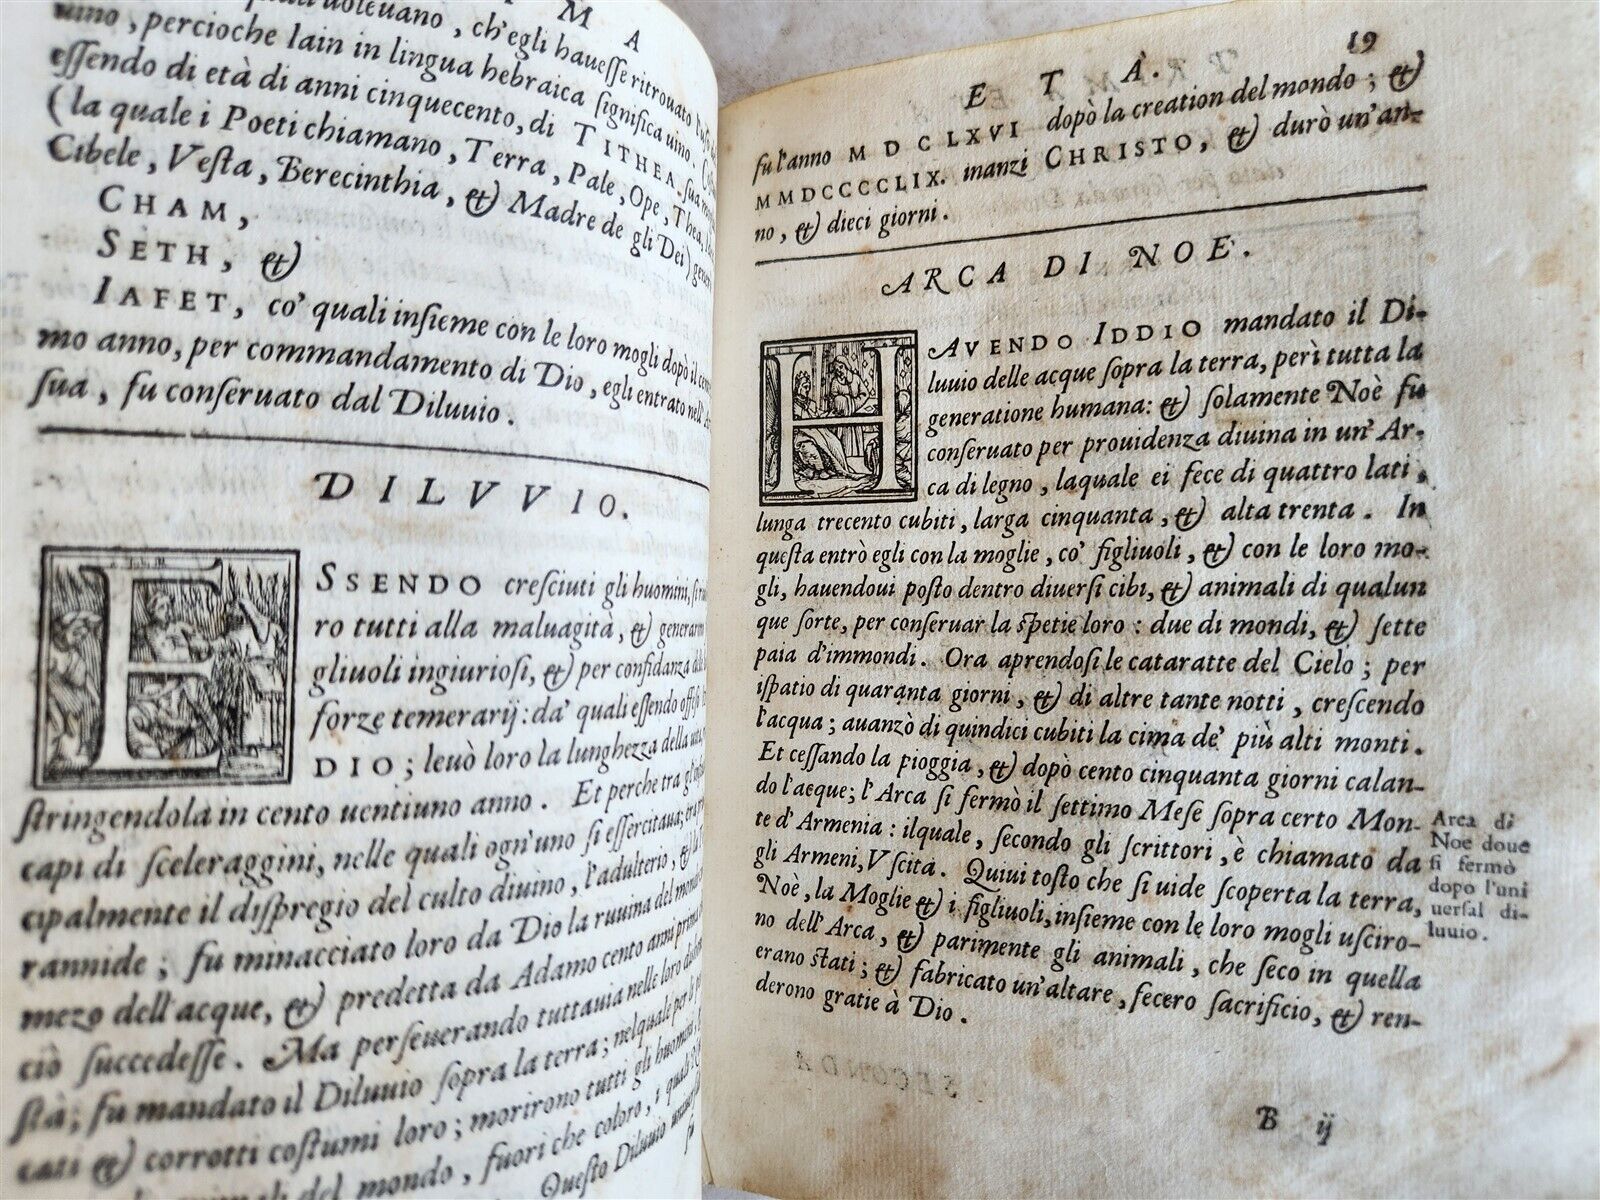 M A
uoleuano, ch'egli hauesse ritrouato l'uso
uino, percioche Iain in lingua hebraica significa uino.
essendo di età di anni cinquecento, di TITHEA sua
(la quale i Poeti chiamano, Terra, Pale, Ope, Thea,
Cibele, Vesta, Berecinthia, et Madre de gli Dei)
CHAM,
SETH, et
IAFET, co' quali insieme con le loro mogli dopò il
mo anno, per commandamento di Dio, egli entrato nell'
sua, fu conseruato dal Diluuio.
DILVVIO.
ESSENDO cresciuti gli huomini,
ro tutti alla maluagità, et
gliuoli ingiuriosi, et per confidanza
forze temerarij: da' quali essendo
DIO; leuò loro la lunghezza della
stringendola in cento uentiuno anno. Et perche tra
capi di sceleraggini, nelle quali ogn'uno si essercitaua;
cipalmente il dispregio del culto diuino, l'adulterio, et
rannide; fu minacciato loro da Dio la ruuina del mondo
mezo dell'acque, et predetta da Adamo cento anni prima
ciò succedesse. Ma perseuerando tuttauia nelle loro
sta; fu mandato il Diluuio sopra la terra; nelquale
cati et corrotti costumi loro; morirono tutti gli huomini,
animali del mondo, fuori che coloro, i quali
Questo Diluuio
fu
ETÀ. 19
fu l'anno MDCLXVI dopò la creation del mondo; et
MMDCCCCLIX. inanzi CHRISTO, et durò un'an-
no, et dieci giorni.
ARCA DI NOE.
HAVENDO IDDIO mandato il Di-
luuio delle acque sopra la terra, perì tutta la
generatione humana: et solamente Noè fu
conseruato per prouidenza diuina in un' Ar-
ca di legno, laquale ei fece di quattro lati,
lunga trecento cubiti, larga cinquanta, et alta trenta. In
questa entrò egli con la moglie, co' figliuoli, et con le loro mo-
gli, hauendoui posto dentro diuersi cibi, et animali di qualun
que sorte, per conseruar la spetie loro: due di mondi, et sette
paia d'immondi. Ora aprendosi le cataratte del Cielo; per
ispatio di quaranta giorni, et di altre tante notti, crescendo
l'acqua; auanzò di quindici cubiti la cima de' più alti monti.
Et cessando la pioggia, et dopò cento cinquanta giorni calan-
do l'acque; l'Arca si fermò il settimo Mese sopra certo Mon-
te d'Armenia: ilquale, secondo gli scrittori, è chiamato da
gli Armeni, Vscita. Quiui tosto che si uide scoperta la terra,
Noè, la Moglie et i figliuoli, insieme con le loro mogli usciro-
no dell'Arca, et parimente gli animali, che seco in quella
erano stati; et fabricato un'altare, fecero sacrificio, et ren-
derono gratie à Dio.
Arca di
Noe doue
si fermò
dopo l'uni
uersal di-
luuio.
B ij